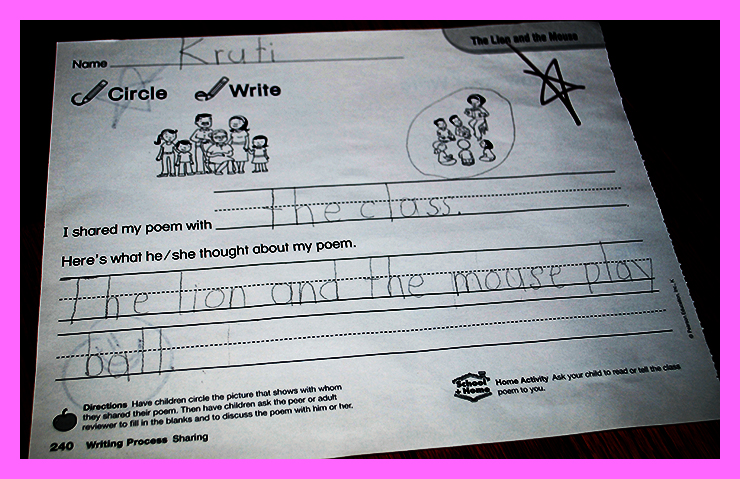 The Lion and the Mouse
Name Kruti
Circle Write
I shared my poem with the class.
Here's what he/she thought about my poem.
The lion and the mouse play
ball.
Directions Have children circle the picture that shows with whom
they shared their poem. Then have children ask the peer or adult
reviewer to fill in the blanks and to discuss the poem with him or her.
School + Home
Home Activity Ask your child to read or tell the class
poem to you.
240 Writing Process Sharing